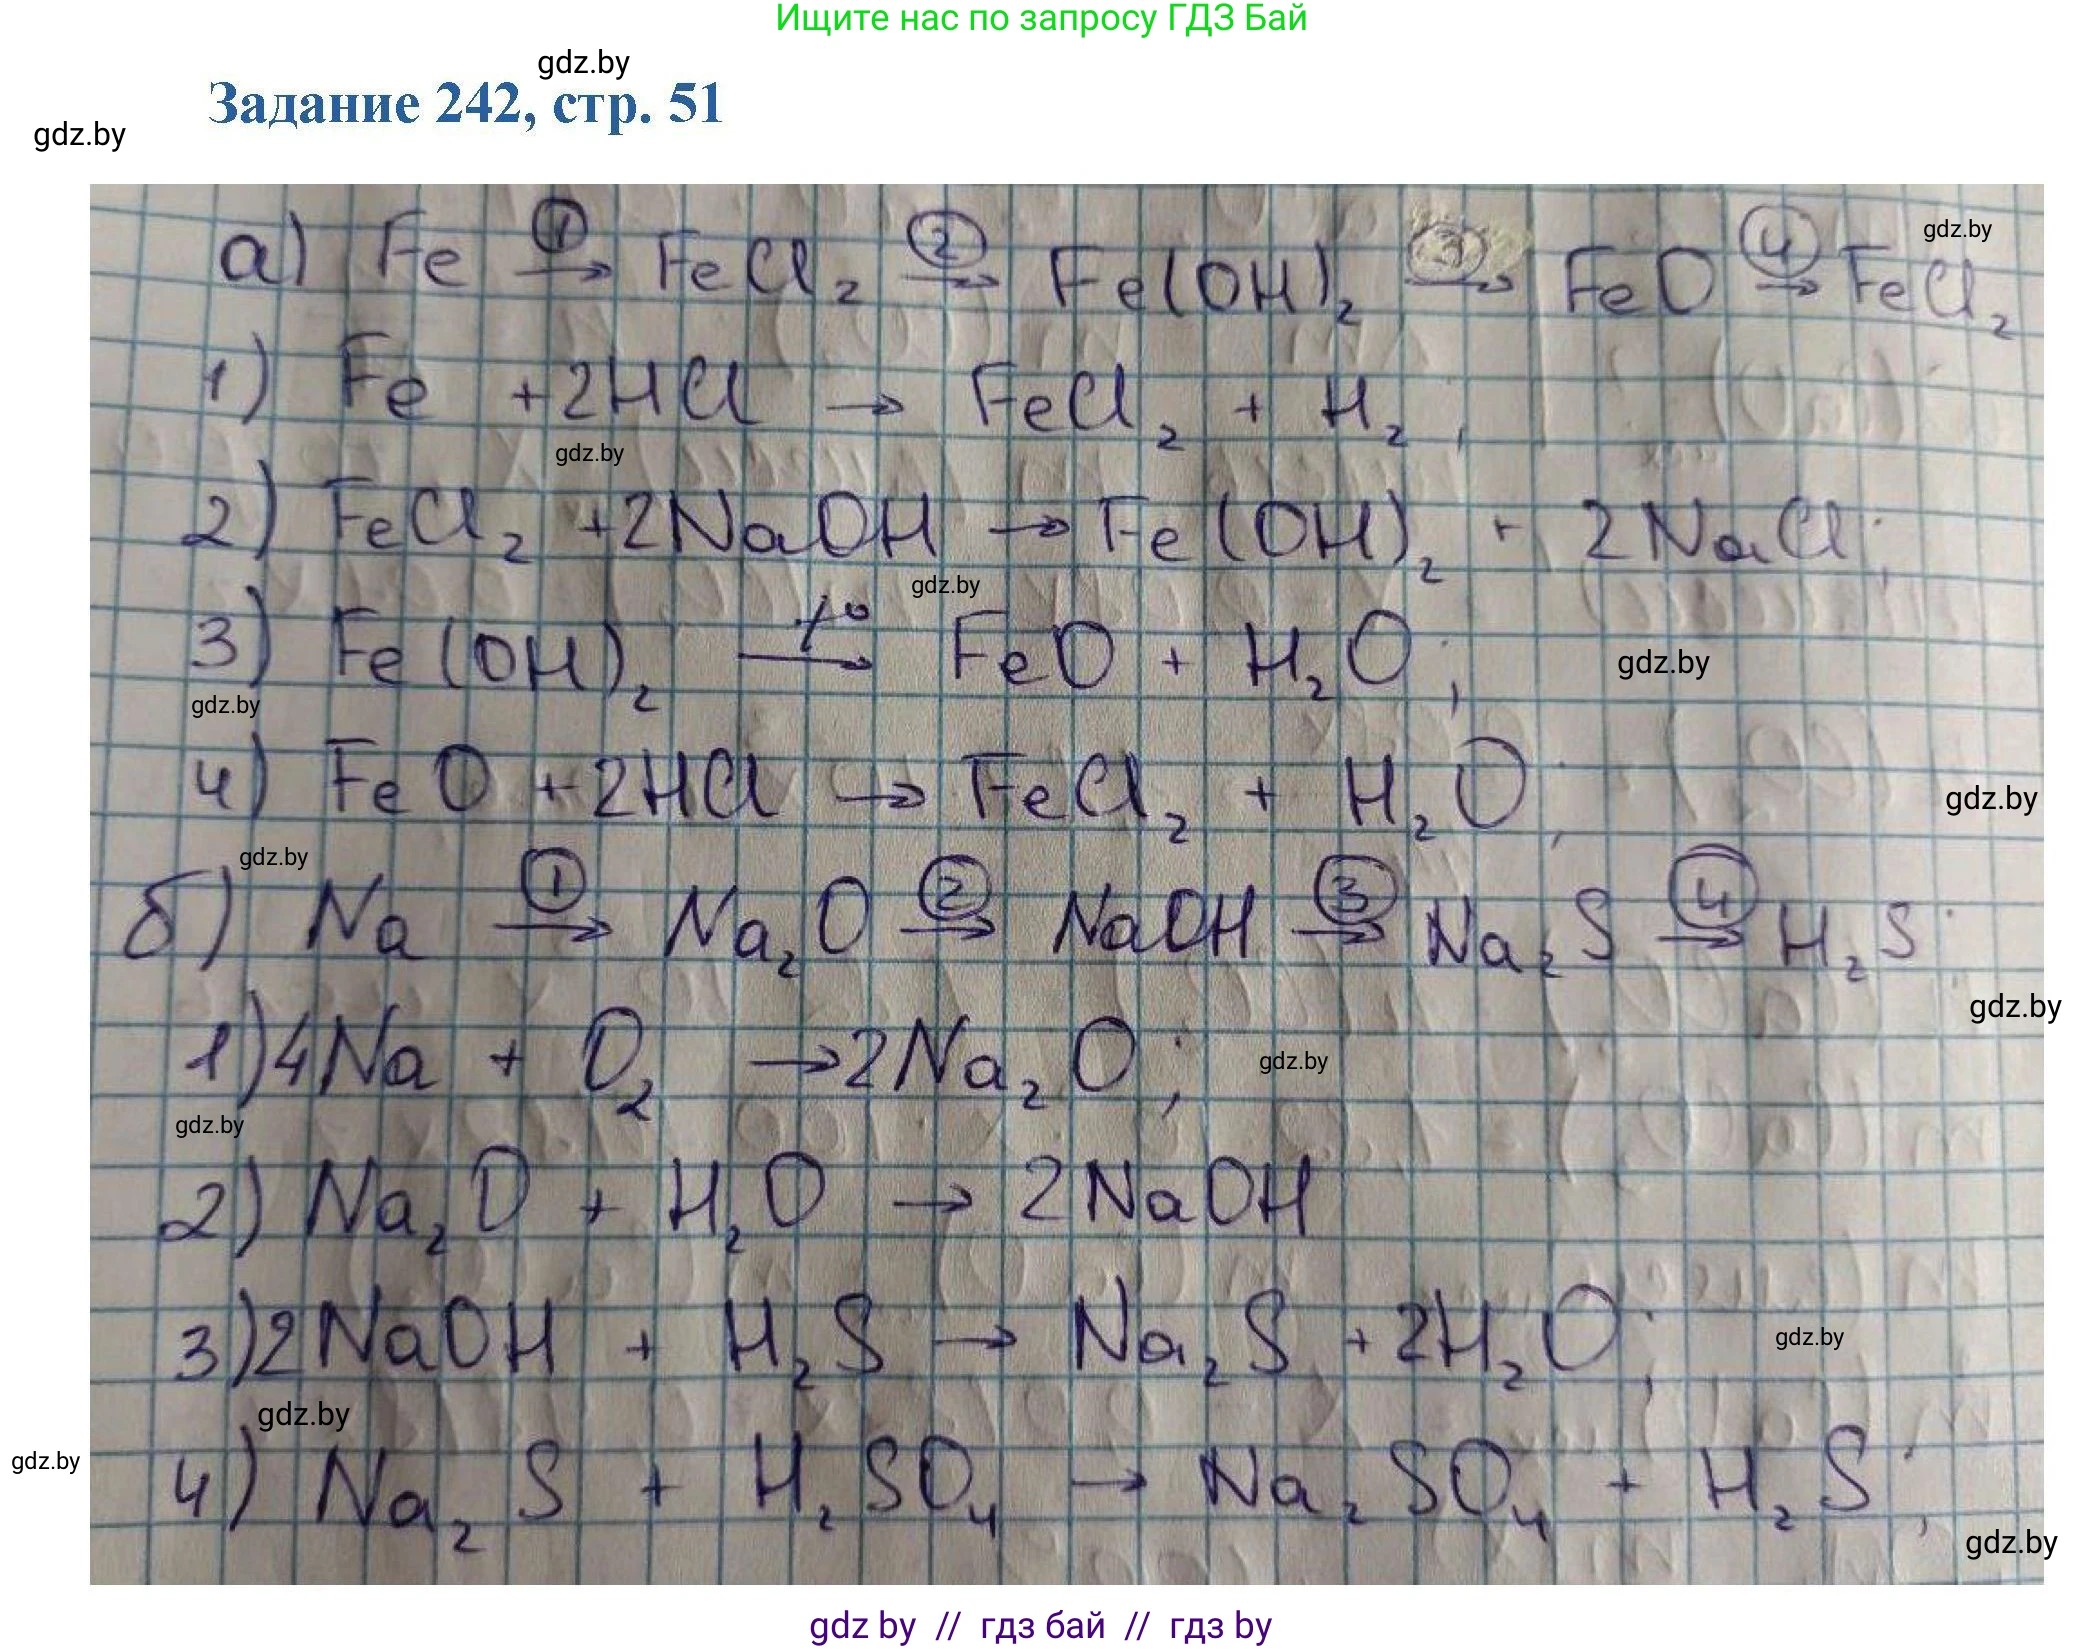 Ищите нас по запросу ГДЗ Бай
gdz.by
Задание 242, стр. 51
gdz.by
а) Fe ①→ FeCl₂ ②→ Fe(OH)₂ ③→ FeO ④→ FeCl₂
gdz.by
1) Fe +2HCl → FeCl₂ + H₂;
gdz.by
2) FeCl₂ +2NaOH → Fe(OH)₂ + 2NaCl;
gdz.by
3) Fe(OH)₂ t°→ FeO + H₂O;
gdz.by
gdz.by
4) FeO +2HCl → FeCl₂ + H₂O;
gdz.by
gdz.by
б) Na ①→ Na₂O ②→ NaOH ③→ Na₂S ④→ H₂S;
gdz.by
1)4Na + O₂ →2Na₂O;
gdz.by
gdz.by
2) Na₂O + H₂O → 2NaOH
3)2NaOH + H₂S → Na₂S +2H₂O;
gdz.by
gdz.by
gdz.by
4) Na₂S + H₂SO₄ → Na₂SO₄ + H₂S;
gdz.by
gdz by // гдз бай // гдз by